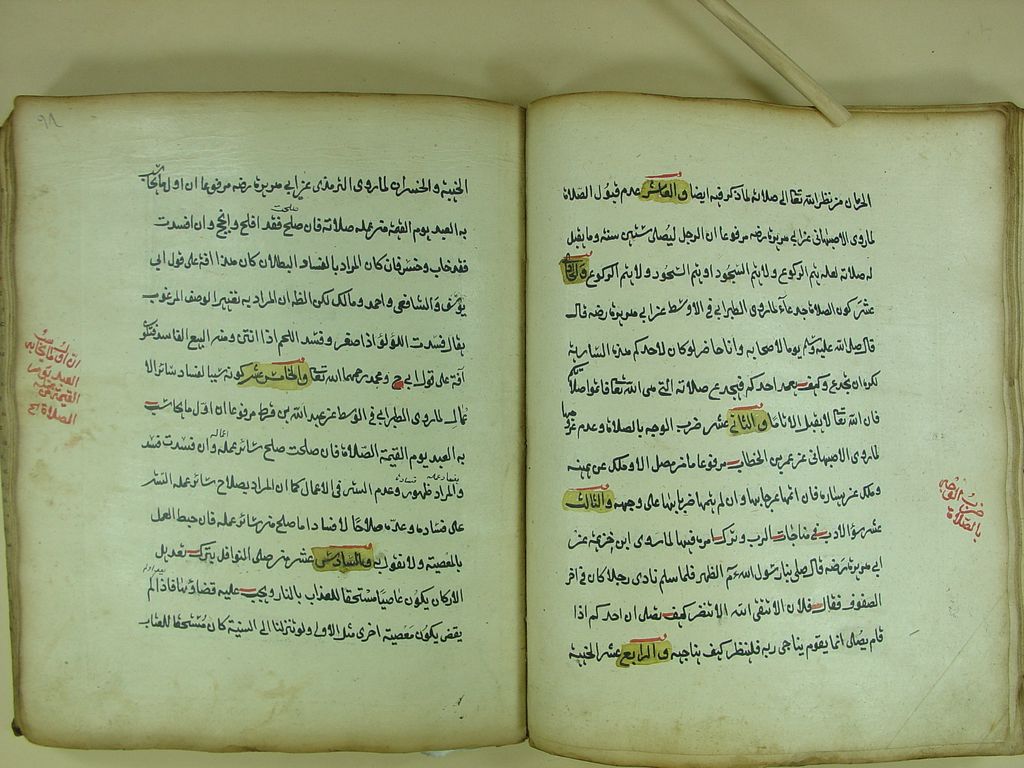 الحرمان من نظر الله تعالى الى صلاته لما ذكر فيه ايضا والعاشر عدم قبول الصلاة
لما روى الاصبهاني عن ابي هريرة رضه مرفوعا ان الرجل ليصلى ستين سنة وما يقبل
له صلاة لعله يتم الركوع ولا يتم السجود او يتم السجود ولا يتم الركوع والحادي
عشر كون الصلاة جدعاء لما روى الطبراني في الاوسط عن ابي هريرة رضه قال
قال صلى الله عليه وسلم يوما لاصحابه وانا حاضر لو كان لاحدكم هذه السارية
لكره ان تجدع وكيف يعمد احدكم فيجدع صلاته التي هي لله تعالى فاتموا صلاتكم
فان الله تعالى لا يقبل الا تاما والثاني عشر ضرب الوجه بالصلاة وعدم عروجها
لما روى الاصبهاني عن عمر بن الخطاب مرفوعا ما من مصل الا وملك عن يمينه
وملك عن يساره فان اتمها عرجا بها وان لم يتمها ضربا بها على وجهه والثالث
عشر سؤ الادب في مناجات الرب وترك امر فيها لما روى ابن خزيمة عن
ابي هريرة رضه قال صلى بنا رسول الله عم الظهر فلما سلم نادى رجلا كان في اخر
الصفوف فقال فلان الا تتقى الله الا تنظر كيف تصلى ان احدكم اذا
قام يصلى انما يقوم يناجى ربه فلينظر كيف يناجيه والرابع عشر الخيبة
ضرب الوجه
بالصلاة
٩٨
الخيبة والخسران لما روى الترمذي عن ابي هريرة رضه مرفوعا ان اول ما يحاسب
به العبد يوم القيمة من عمله صلاته فان صلح فقد افلح وانجح وان افسدت
صلحت
فقد خاب وخسر فان كان المراد بالفساد البطلان كان هذا افة على قول ابي
يوسف والشافعي واحمد ومالك لكن الظاهر ان المراد به تغيير الوصف المرغوب
يقال فسدت اللؤلؤ اذا صفر وفسد اللحم اذا انتن ومنه البيع الفاسد فتكون
آفة على قول ابي ح ومحمد رحمهما الله تعالى والخامس عشر كونه سببا لفساد سائر الا
عمال لما روى الطبراني في الاوسط عن عبد الله بن قرط مرفوعا ان اول ما يحاسب
به العبد يوم القيمة الصلاة فان صلحت صلح سائر عمله وان فسدت فسد
والمراد ظهور وعدم الستر في الاعمال كما ان المراد بصلاح سائر عمله الستر
على فساده وعده صلاحا لا فساد اما صلح من سائر عمله فان حبط العمل
بالمعصية ولا نقول به والسادس عشر من صلى النوافل بترك تعديل
الاركان يكون عاصيا مستحقا للعذاب بالنار ويجب عليه قضاؤها فاذا لم
يقض يكون معصية اخرى مثل الاولى ولو تنزلنا الى السنية كان مستحقا للعتاب
ان اول ما يحاسب به
العبد يوم
القيمة
الصلاة